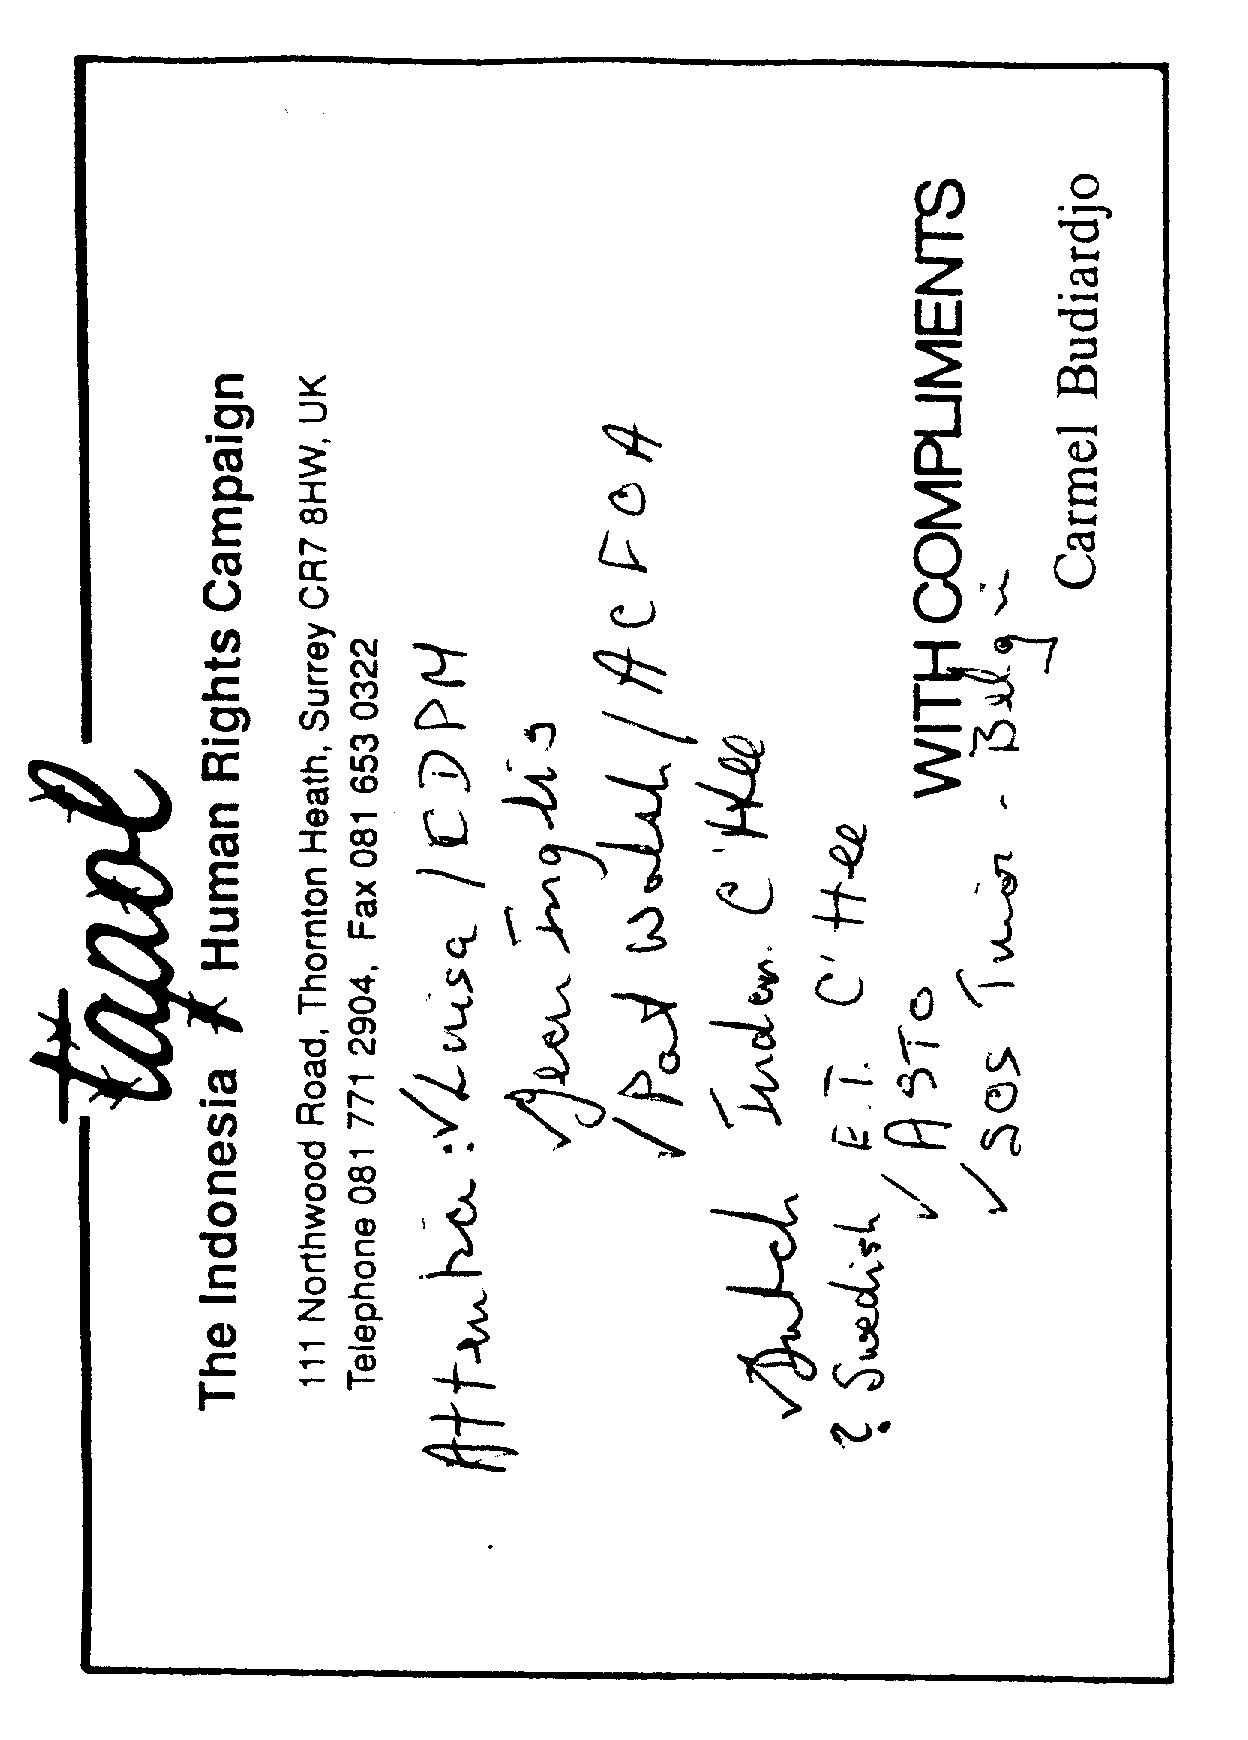 tapol
The Indonesia Human Rights Campaign
111 Northwood Road, Thornton Heath, Surrey CR7 8HW, UK
Telephone 081 771 2904, Fax 081 653 0322
Attention: ✓ Luisa / CDPM
✓ Jean Inglis
✓ Pat Walsh / ACFOA
✓ Dutch Indon. C'ttee
? Swedish E.T. C'ttee
✓ ASTO
WITH COMPLIMENTS
✓ SOS Timor - Belg
Carmel Budiardjo